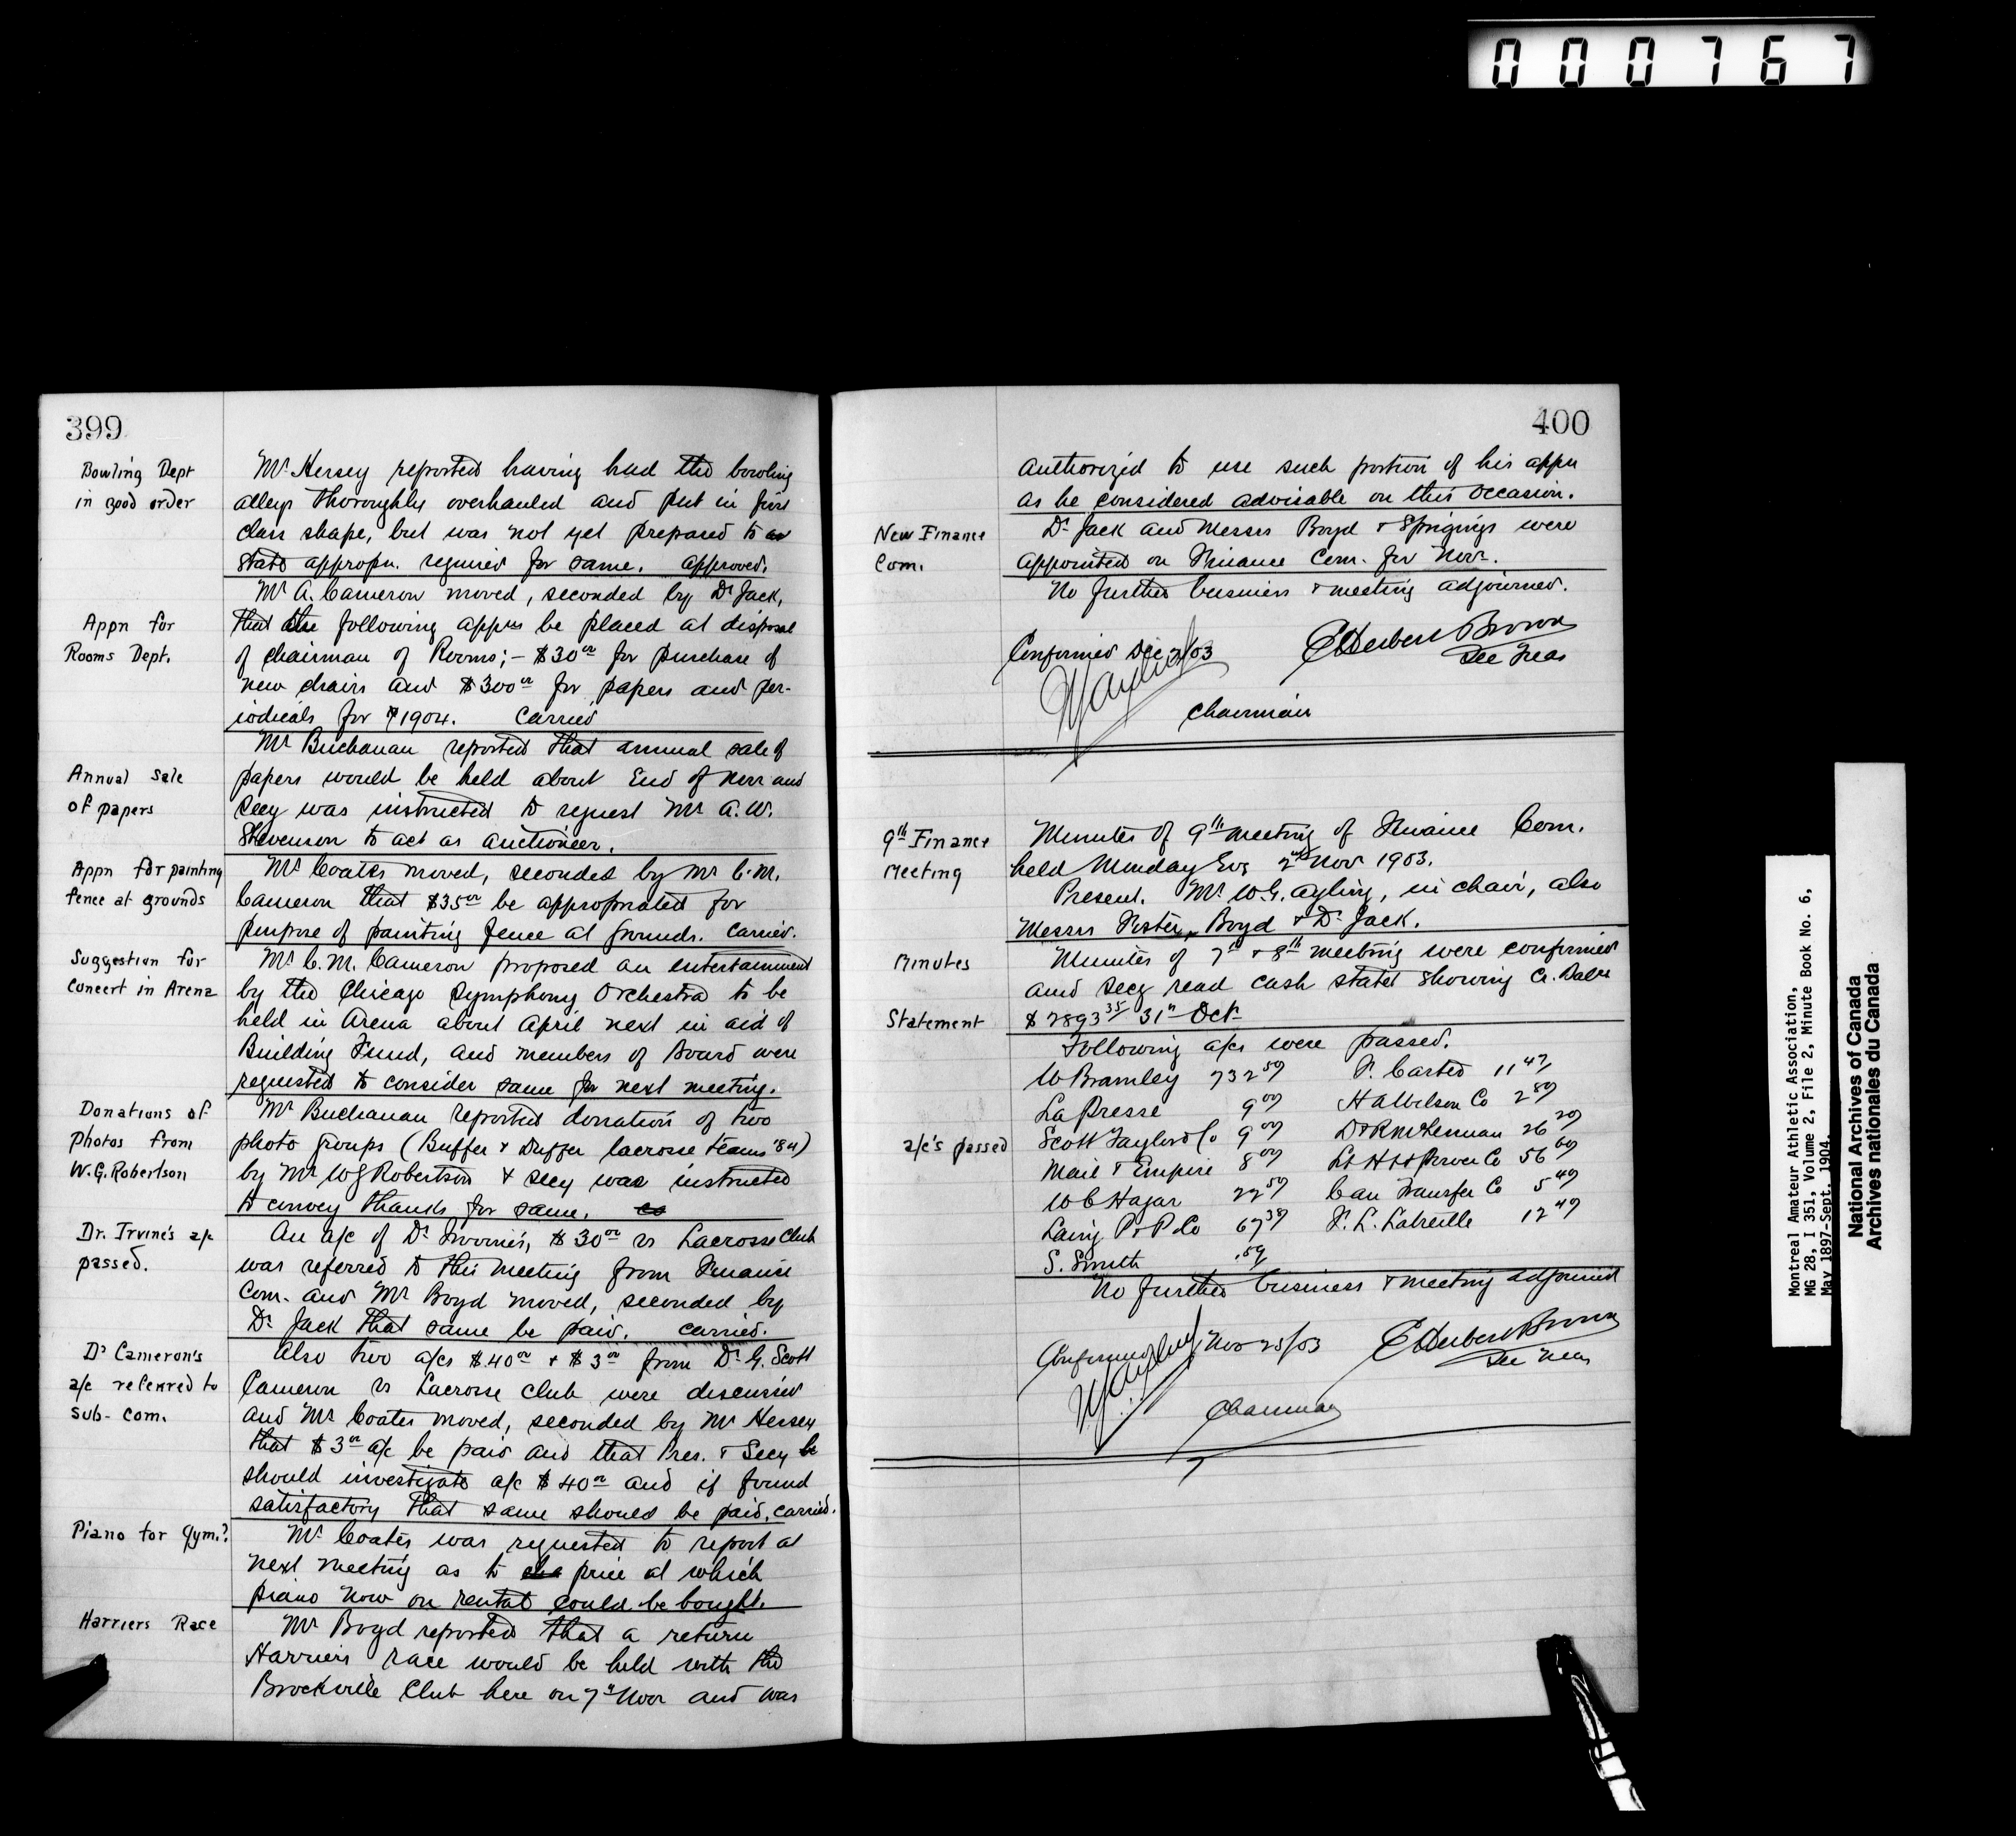 000767
399
Bowling Dept
in good order
Mr Hersey reported having had the bowling
alleys thoroughly overhauled and put in first
class shape, but was not yet prepared to
state appropn. required for same. approved.
Mr A. Cameron moved, seconded by Dr Jack,
Appn for
Rooms Dept.
that the following appns be placed at disposal
of Chairman of Rooms; - $30 00 for purchase of
new chairs and $300 00 for papers and per-
iodicals for 1904. Carried
Mr Buchanan reported that annual sale of
Annual Sale
of papers
papers would be held about End of Novr and
Secy was instructed to request Mr A. W.
Stevenson to act as auctioneer.
Appn for painting
fence at grounds
Mr Coates moved, seconded by Mr C. M.
Cameron that $35 00 be appropriated for
purpose of painting fence at grounds. carried.
Suggestion for
Concert in Arena
Mr C. M. Cameron proposed an entertainment
by the Chicago Symphony Orchestra to be
held in Arena about April next in aid of
Building Fund, and members of Board were
requested to consider same for next meeting.
Donations of
photos from
W. G. Robertson
Mr Buchanan reported donation of two
photo groups (Buffer & Duffer lacrosse teams '84)
by Mr W G Robertson & secy was instructed
to convey thanks for same.
Dr. Irvine's a/c
passed.
An a/c of Dr Irvine's, $30 00 vs Lacrosse Club
was referred to this meeting from Finance
Com. and Mr Boyd moved, seconded by
Dr Jack that same be paid. carried.
Dr Cameron's
a/c referred to
sub-com.
Also two a/cs $40 00 & $3 00 from Dr G. Scott
Cameron vs Lacrosse Club were discussed
and Mr Coates moved, seconded by Mr Hersey
that $3 00 a/c be paid and that Pres. & Secy
should investigate a/c $40 00 and if found
satisfactory that same should be paid. carried.
Piano for Gym.?
Mr Coates was requested to report at
next meeting as to price at which
piano now on rental could be bought.
Harriers Race
Mr Boyd reported that a return
Harriers race would be held with the
Brockville Club here on 7th Novr and was
400
authorized to use such portion of his appn
as he considered advisable on this occasion.
New Finance
Com.
Dr Jack and Messrs Boyd & Sprigings were
appointed on Finance Com. for Novr.
No further business & meeting adjourned.
Confirmed Dec /03
E Herbert Brown
Sec Treas
W G Ayling
Chairman
9th Finance
Meeting
Minutes of 9th meeting of Finance Com.
held Monday Evg 2nd Novr 1903.
Present. Mr W. G. Ayling, in chair, also
Messrs Foster, Boyd & Dr Jack.
Minutes
Minutes of 7th & 8th meeting were confirmed
and secy read cash statet showing Cr. Balce
Statement
$2893 35 31st Oct
Following a/cs were passed.
W Bramley 732 50 P. Carted 11 47
La Presse 9 00 H A Wilson Co 2 50
a/c's passed
Scott Taylor Co 9 00 D & R McLennan 26 20
Mail & Empire 8 00 Lt Ht & Power Co 56 60
W C Hagar 22 50 Can Transfer Co 5 40
Laing P & P Co 67 30 12 40
S. Smith .50
No further business & meeting adjourned
Confirmed Nov 25/03
E Herbert Brown
Sec Treas
W G Ayling
Chairman
Montreal Amateur Athletic Association,
MG 28, I 351, Volume 2, File 2, Minute Book No. 6,
May 1897-Sept. 1904.
National Archives of Canada
Archives nationales du Canada